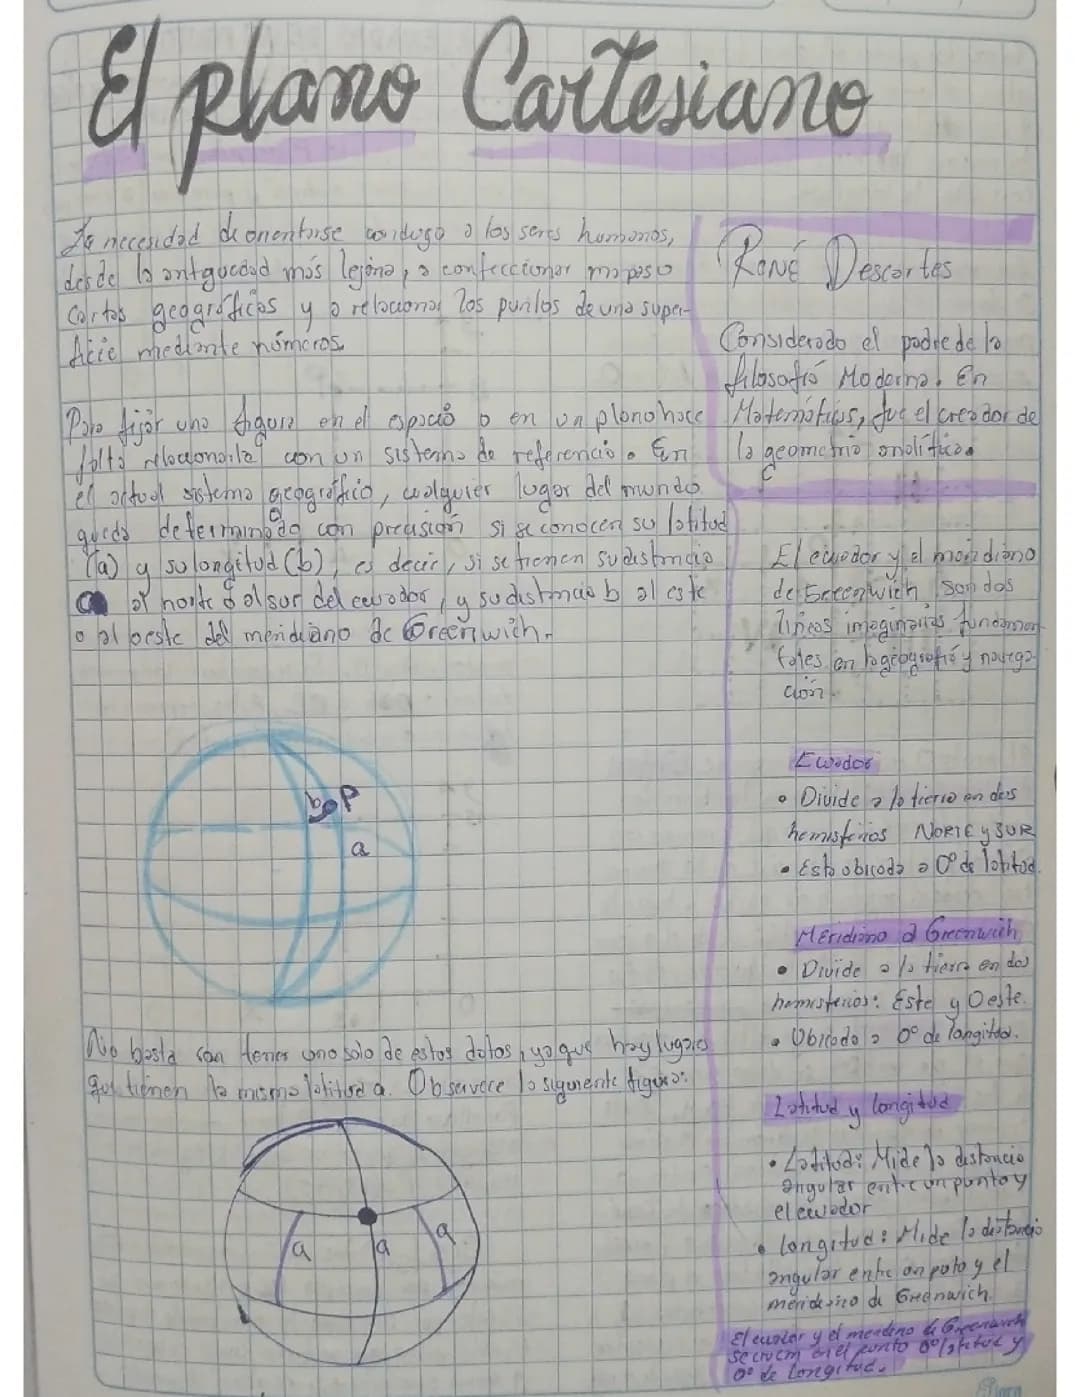 El plano Cartesiano
La necesidad de orientarse condujo a los seres humanos,
desde la antiguedad más lejana, a confeccionar mapas o
Cartas geográficas y a relacionar los puntos de una super-
ficie mediante números.
Para fijar una figura en el espacio o en un plano hace
falta relacionarla con un sistema de referencia. En
el actual sistema geográfico, cualquier lugar del mundo
queda determinado con precisión si se conocen su latitud
(a) y su longitud (b), es decir, si se tienen su distancia
al norte o al sur del ecuador, y su distancia b al este
o al oeste del meridiano de Greenwich.
b P
a
No basta con tener uno solo de estos datos, ya que hay lugares
que tienen la misma latitud a. Observece la siguiente figura:
a a a
René Descartes
Considerado el padre de la
filosofía Moderna. En
Matemáticas, fue el creador de
la geometria analítica.
El ecuador y el meridiano
de Greenwich Son dos
líneas imaginarias fundamen-
tales en la geografía y navega-
ción.
Ecuador
• Divide a la tierra en dos
hemisferios NORTE y SUR
• Esta obicada a 0° de latitud.
Meridiano d Greenwich
• Divide a la tierra en dos
hemisferios: Este y Oeste.
• Obicado a 0° de longitud.
Latitud y longitud
• Latitud: Mide la distancia
angular entre un punto y
el ecuador
• longitud: Mide la distancia
angular entre un puto y el
meridiano de Greenwich.
El ecuador y el meridiano de Greenwich
se crucen en el punto 0° latitud y
0° de longitud.